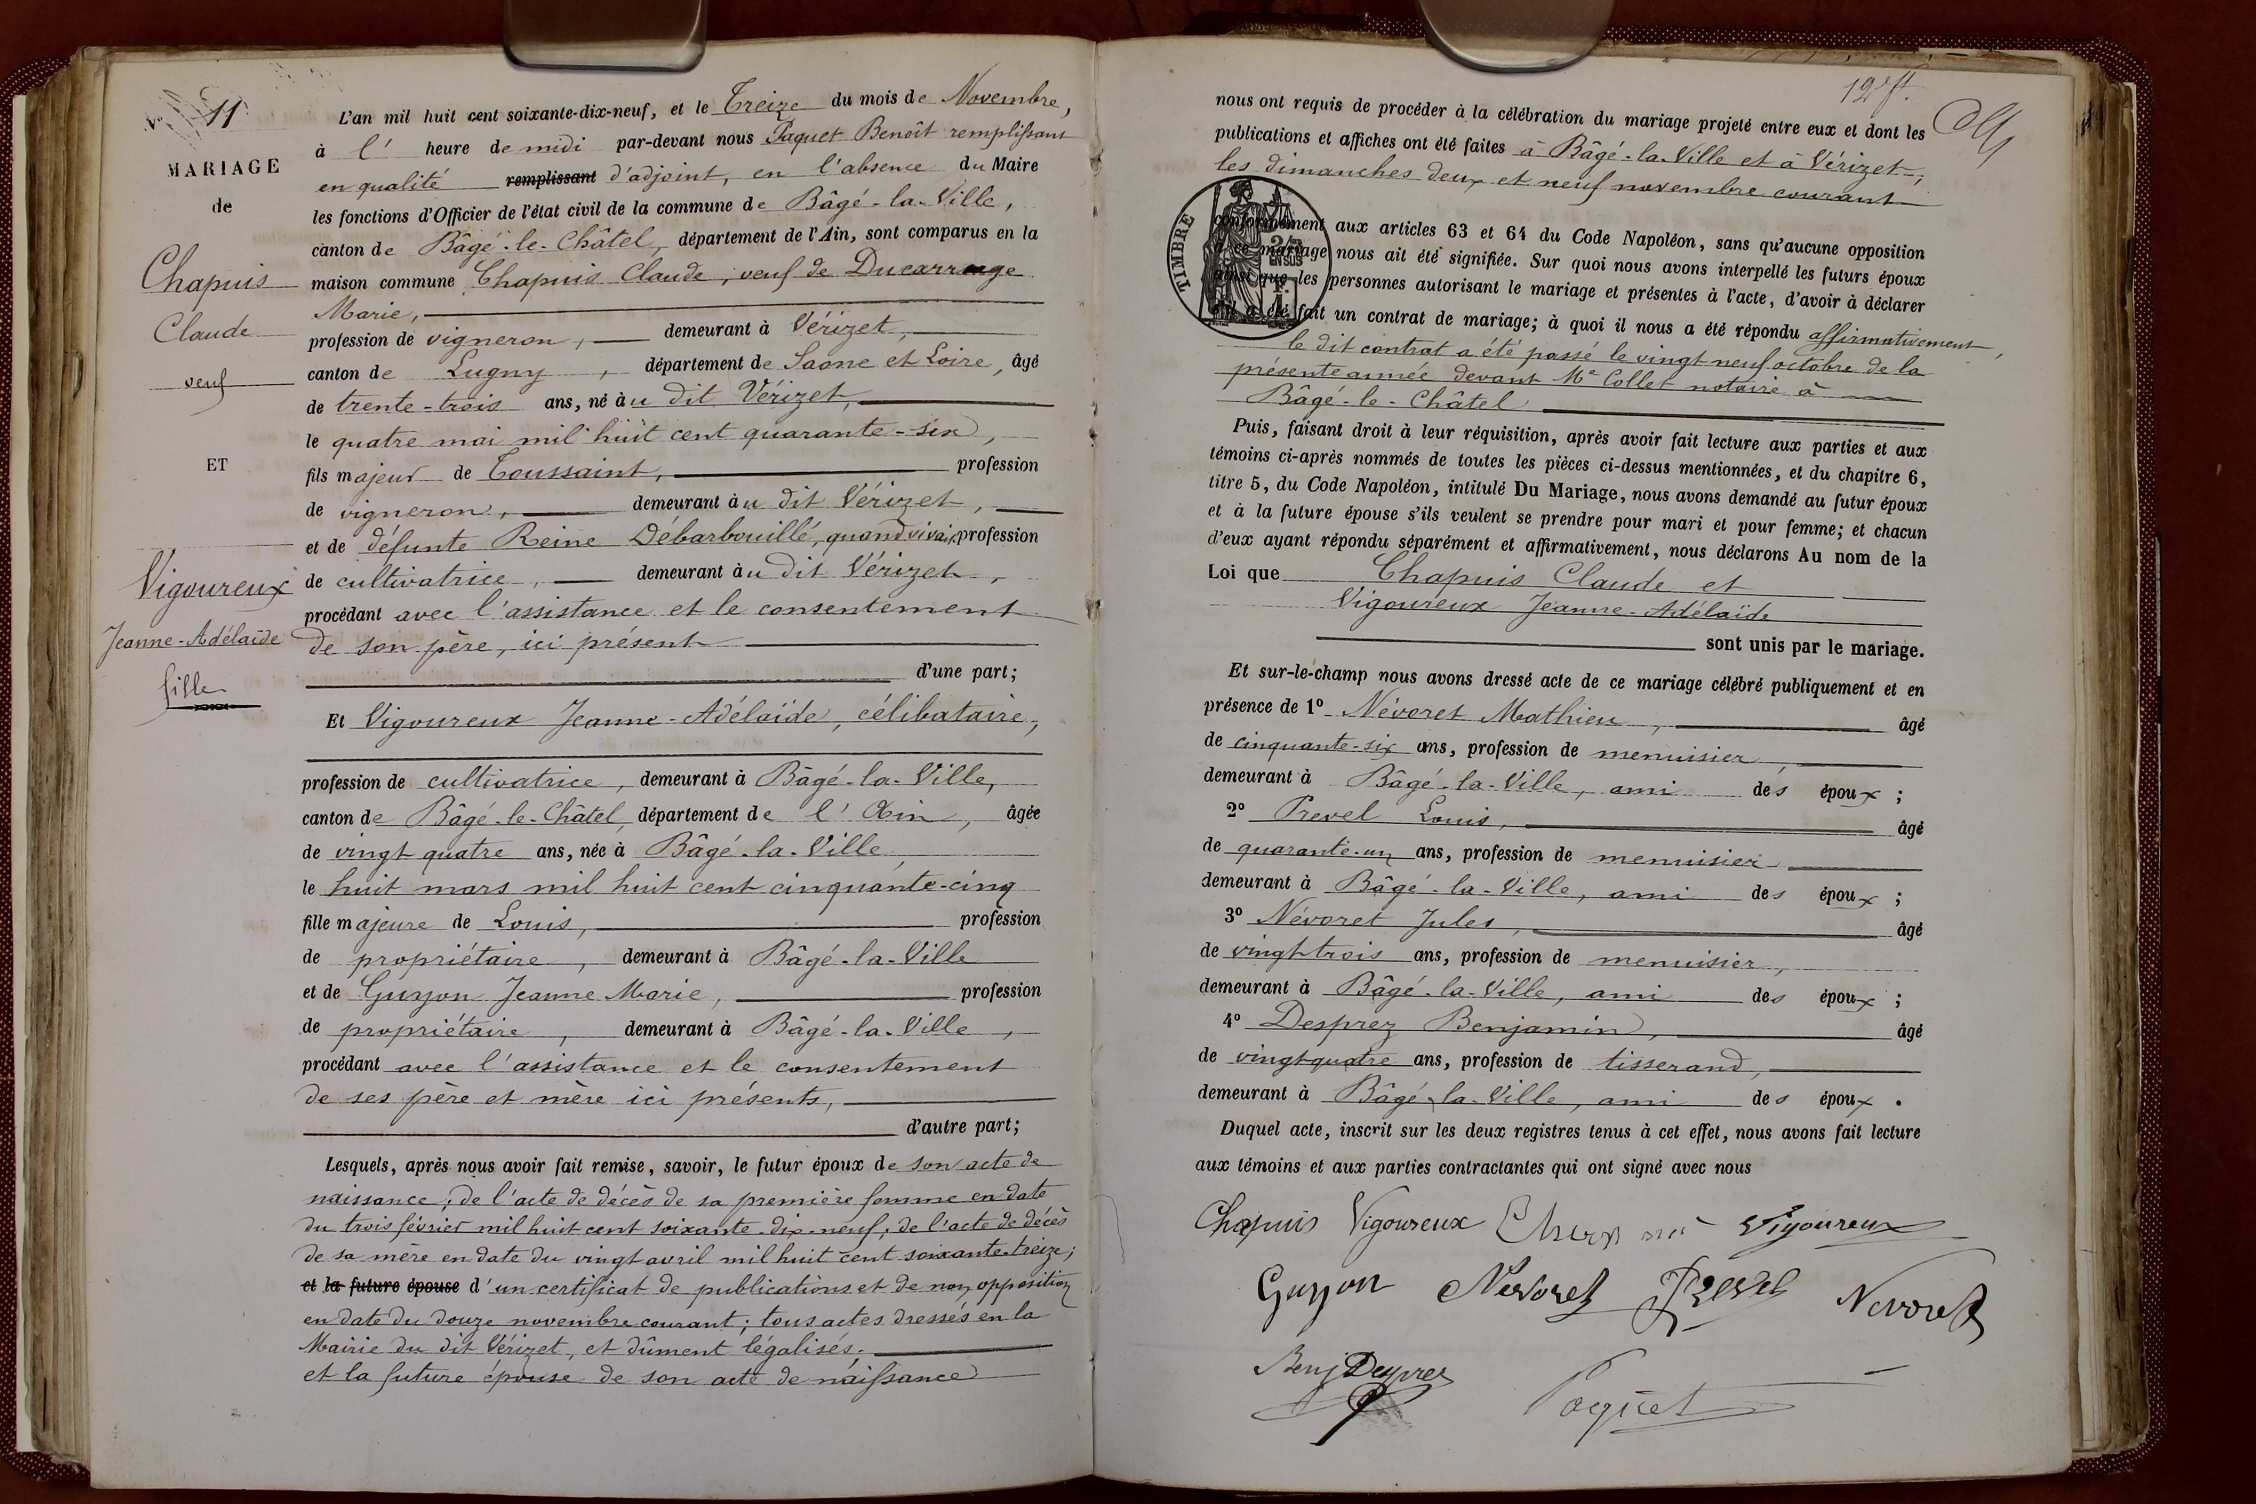 N° 11
MARIAGE
de
Chapuis
Claude
veuf
ET
Vigoureux
Jeanne-Adélaïde
fille
L'an mil huit cent soixante-dix-neuf, et le Treize du mois de Novembre,
à l' heure de midi par-devant nous Paquet Benoît remplissant
en qualité remplissant d'adjoint, en l'absence du Maire
les fonctions d'Officier de l'état civil de la commune de Bâgé-la-Ville,
canton de Bâgé-le-Châtel, département de l'Ain, sont comparus en la
maison commune Chapuis Claude, veuf de Ducarrouge
Marie,
profession de vigneron, demeurant à Vérizet,
canton de Lugny, département de Saône et Loire, âgé
de trente-trois ans, né àu dit Vérizet,
le quatre mai mil huit cent quarante-six,
fils majeur de Toussaint, profession
de vigneron, demeurant àu dit Vérizet,
et de défunte Reine Débarbouillé, quand vivait, profession
de cultivatrice, demeurant àu dit Vérizet,
procédant avec l'assistance et le consentement
de son père, ici présent
d'une part;
Et Vigoureux Jeanne-Adélaïde, célibataire,
profession de cultivatrice, demeurant à Bâgé-la-Ville,
canton de Bâgé-le-Châtel, département de l'Ain, âgée
de vingt quatre ans, née à Bâgé-la-Ville,
le huit mars mil huit cent cinquante-cinq
fille majeure de Louis, profession
de propriétaire, demeurant à Bâgé-la-Ville
et de Guyon Jeanne Marie, profession
de propriétaire, demeurant à Bâgé-la-Ville,
procédant avec l'assistance et le consentement
de ses père et mère ici présents,
d'autre part;
Lesquels, après nous avoir fait remise, savoir, le futur époux de son acte de
naissance; de l'acte de décès de sa première femme en date
du trois février mil huit cent soixante-dix-neuf; de l'acte de décès
de sa mère en date du vingt avril mil huit cent soixante-treize;
et la future épouse d'un certificat de publications et de non opposition
en date du douze novembre courant; tous actes dressés en la
Mairie du dit Vérizet, et dûment légalisés;
et la future épouse de son acte de naissance
12
nous ont requis de procéder à la célébration du mariage projeté entre eux et dont les
publications et affiches ont été faites à Bâgé-la-Ville et à Vérizet,
les dimanches deux et neuf novembre courant
TIMBRE
2/10
EN SUS
1 F.
conformément aux articles 63 et 64 du Code Napoléon, sans qu'aucune opposition
à ce mariage nous ait été signifiée. Sur quoi nous avons interpellé les futurs époux
ainsi que les personnes autorisant le mariage et présentes à l'acte, d'avoir à déclarer
s'il a été fait un contrat de mariage; à quoi il nous a été répondu affirmativement,
le dit contrat a été passé le vingt neuf octobre de la
présente année devant Me Collet notaire à
Bâgé-le-Châtel
Puis, faisant droit à leur réquisition, après avoir fait lecture aux parties et aux
témoins ci-après nommés de toutes les pièces ci-dessus mentionnées, et du chapitre 6,
titre 5, du Code Napoléon, intitulé Du Mariage, nous avons demandé au futur époux
et à la future épouse s'ils veulent se prendre pour mari et pour femme; et chacun
d'eux ayant répondu séparément et affirmativement, nous déclarons Au nom de la
Loi que Chapuis Claude et
Vigoureux Jeanne-Adélaïde
sont unis par le mariage.
Et sur-le-champ nous avons dressé acte de ce mariage célébré publiquement et en
présence de 1° Névoret Mathieu, âgé
de cinquante-six ans, profession de menuisier,
demeurant à Bâgé-la-Ville, ami des époux;
2° Prevel Louis, âgé
de quarante-un ans, profession de menuisier
demeurant à Bâgé-la-Ville, ami des époux;
3° Névoret Jules, âgé
de vingt-trois ans, profession de menuisier,
demeurant à Bâgé-la-Ville, ami des époux;
4° Desprez Benjamin, âgé
de vingt-quatre ans, profession de tisserand,
demeurant à Bâgé-la-Ville, ami des époux.
Duquel acte, inscrit sur les deux registres tenus à cet effet, nous avons fait lecture
aux témoins et aux parties contractantes qui ont signé avec nous
Chapuis Vigoureux Vigoureux
Guyon Nevoret Prevel Nevoret
Benj Desprez Paquet